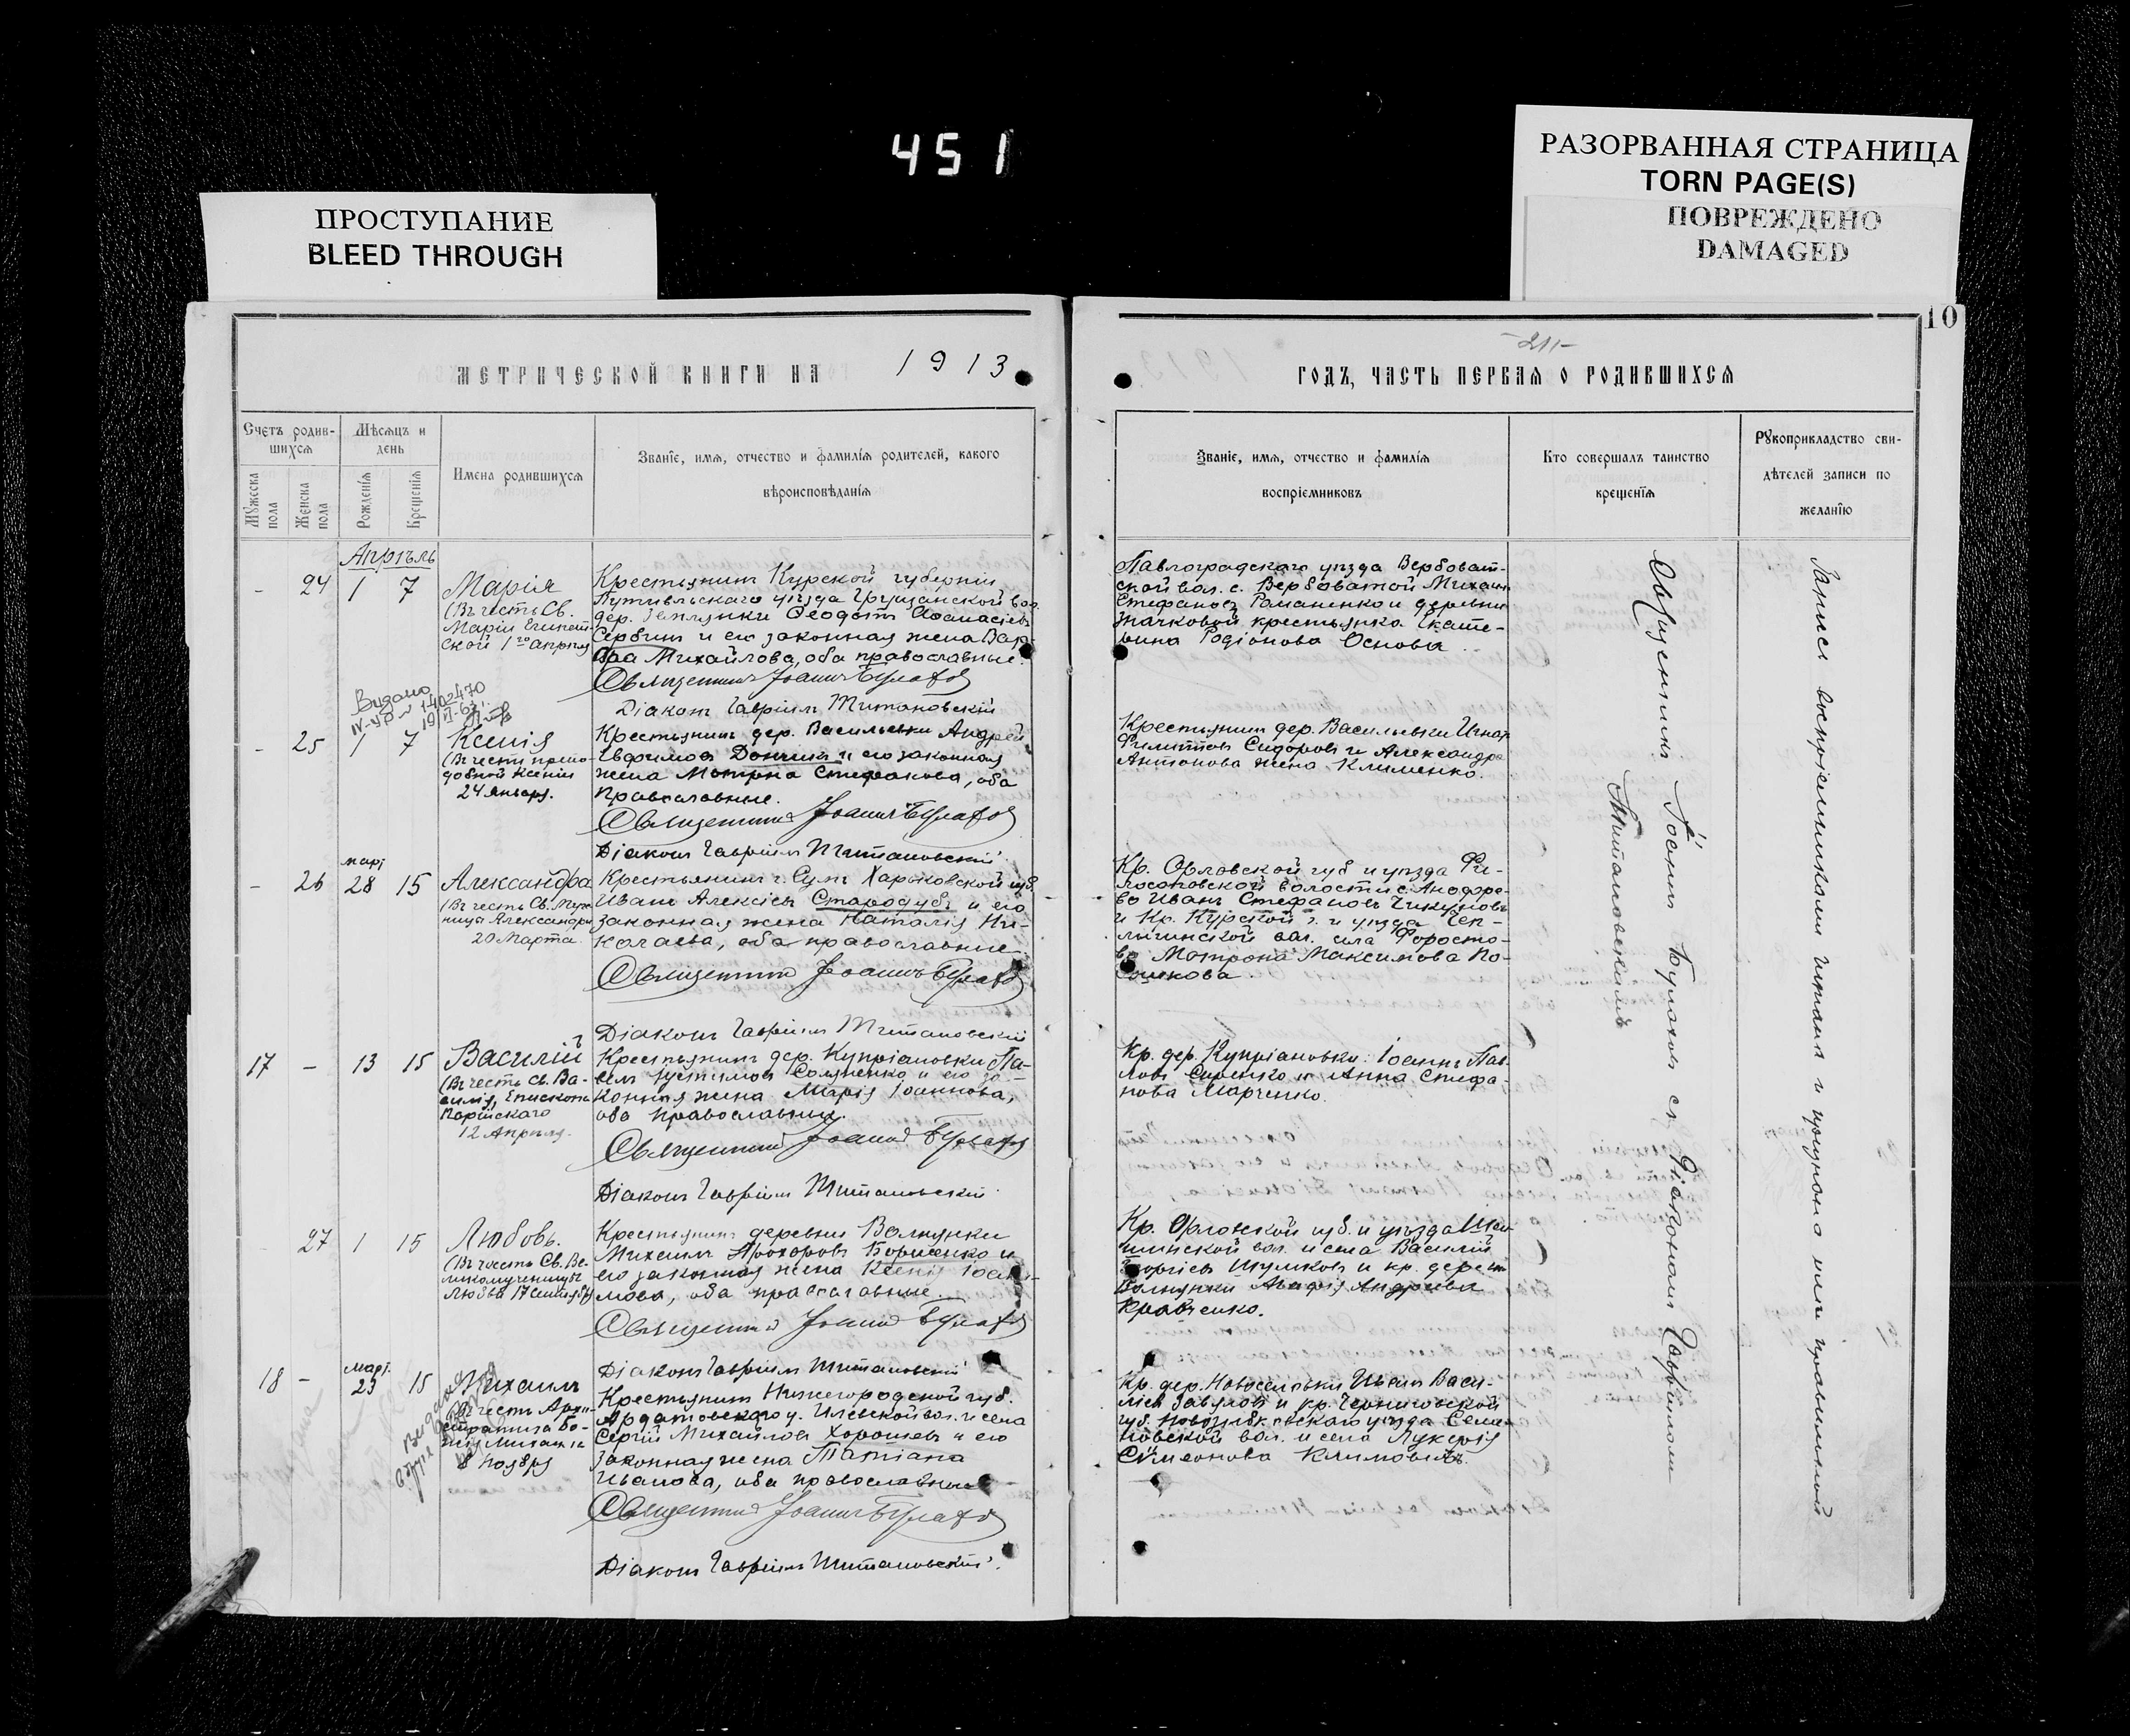 451
ПРОСТУПАНИЕ
BLEED THROUGH
РАЗОРВАННАЯ СТРАНИЦА
TORN PAGE(S)
ПОВРЕЖДЕНО
DAMAGED
10
-211-
МЕТРИЧЕСКОЙ КНИГИ НА 1913
ГОДЪ, ЧАСТЬ ПЕРВАЯ О РОДИВШИХСЯ
Счетъ родив-
шихся
Мужеска пола
Женска пола
Мѣсяцъ и
день
Рожденія
Крещенія
Имена родившихся
Званіе, имя, отчество и фамилія родителей, какого
вѣроисповѣданія
Званіе, имя, отчество и фамилія
воспріемниковъ
Кто совершалъ таинство
крещенія
Рукоприкладство сви-
дѣтелей записи по
желанію
Апрѣль
- 24 1 7 Марія
(Въ честь Св.
Маріи Египет-
ской 1го апрѣля
Крестьянинъ Курской губерніи
Путивльскаго уѣзда Грузчанской вол.
дер. Ѳеодотъ Аѳанасіевъ
Сербинъ и его законная жена Вар-
вара Михайлова, оба православные.
Священникъ Іоаннъ Булахов
Діаконъ Гавріилъ Титановскій
Павлоградскаго уѣзда Вербоват-
ской вол. с. Вербоватой Михаилъ
Стефановъ Романенко и деревни
крестьянка Екате-
рина Родіонова Основа.
Выдано
- 25 1 7 Ксенія
(Въ честь препо-
добной Ксеніи
24 Января.
Крестьянинъ дер. Васильевки Андрей
Евфимовъ Дончикъ и его законная
жена Мотрона Стефанова, оба
Православные.
Священникъ Іоаннъ Булахов
Діаконъ Гавріилъ Титановскій
Крестьянинъ дер. Васильевки Игнат
Филипповъ Сидоровъ и Александра
Антонова жена Клименко.
март
- 26 28 15 Александра
(Въ честь Св. Муче
ницы Александры
20 Марта
Крестьянинъ г. Сумъ Харьковской губ.
Иванъ Алексѣевъ Стародубъ и его
законная жена Наталія Ни-
колаева, оба православные
Священникъ Іоаннъ Булахов
Діаконъ Гавріилъ Титановскій
Кр. Орловской губ и уѣзда Фи-
лософовской волости с.
во Иванъ Стефановъ Чикуновъ
и Кр. Курской г. и уѣзда
вол. села
Мотрона Максимова По-
17 - 13 15 Василій
(Въ честь Св. Ва-
силія, Епископа
Парійскаго
12 Апрѣля.
Крестьянинъ дер. Купріановки Па-
велъ Устимовъ и его за-
конная жена Марія Іоаннова,
оба Православные.
Священникъ Іоаннъ Булахов
Діаконъ Гавріилъ Титановскій
Кр. дер. Купріановки Іоаннъ Пав-
ловъ и Анна Стефа-
нова Марченко.
27 1 15 Любовь.
(Въ честь Св. Ве-
ликомученицы
Любви 17 Сентября
Крестьянинъ деревни Волнянки
Михаилъ Прохоровъ Борисенко и
его законная жена Ксенія
мова, оба православные.
Священникъ Іоаннъ Булахов
Діаконъ Гавріилъ Титановскій
Кр. Орловской губ. и уѣзда
вол. и села Василій
Георгіевъ Шумковъ и кр. деревни
Волнянки Агафія Андреева
Кравченко.
март.
18 - 23 15 Михаилъ
(Въ честь Архи-
стратига Бо-
жія Михаила
8 Ноября
Крестьянинъ Нижегородской губ.
Ардатовскаго у. Илевской вол. и села
Сергій Михайловъ Хорошевъ и его
законная жена Татіана
Иванова, оба православные
Священникъ Іоаннъ Булахов
Діаконъ Гавріилъ Титановскій.
Кр. дер. Новоселовки Иванъ Васи-
ліев Завяловъ и кр. Черниговской
губ. Новозыбковскаго уѣзда Семе-
новской вол. и села Лукерія
Симеонова
Священникъ Іоаннъ Булахов съ діакономъ Гавріиломъ
Титановскимъ
Запись воспріемниками читана и признана ими правильной